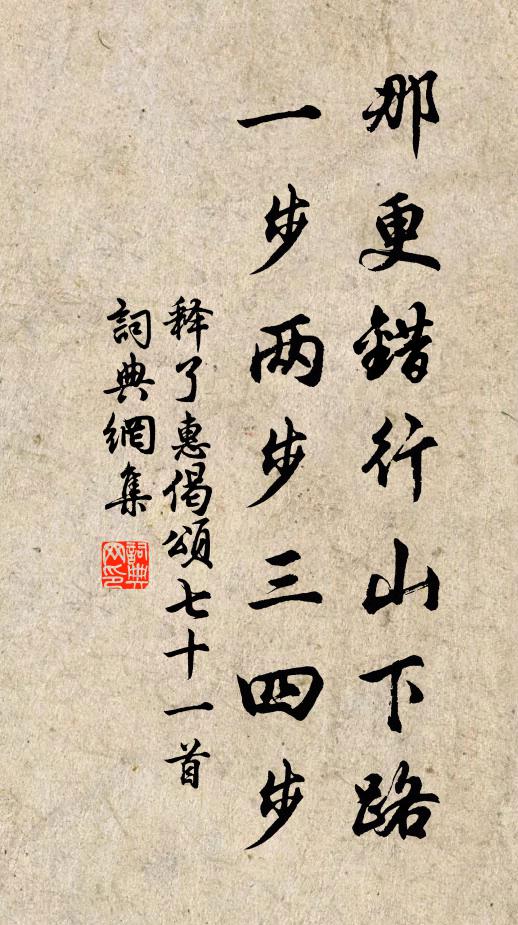 那更錯行山下路
一步两步三四步
释了惠偈頌七十一首
詞典網集
詞典网印